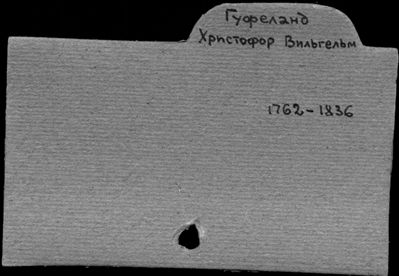 Гуфеланд
Христофор Вильгельм
1762-1836